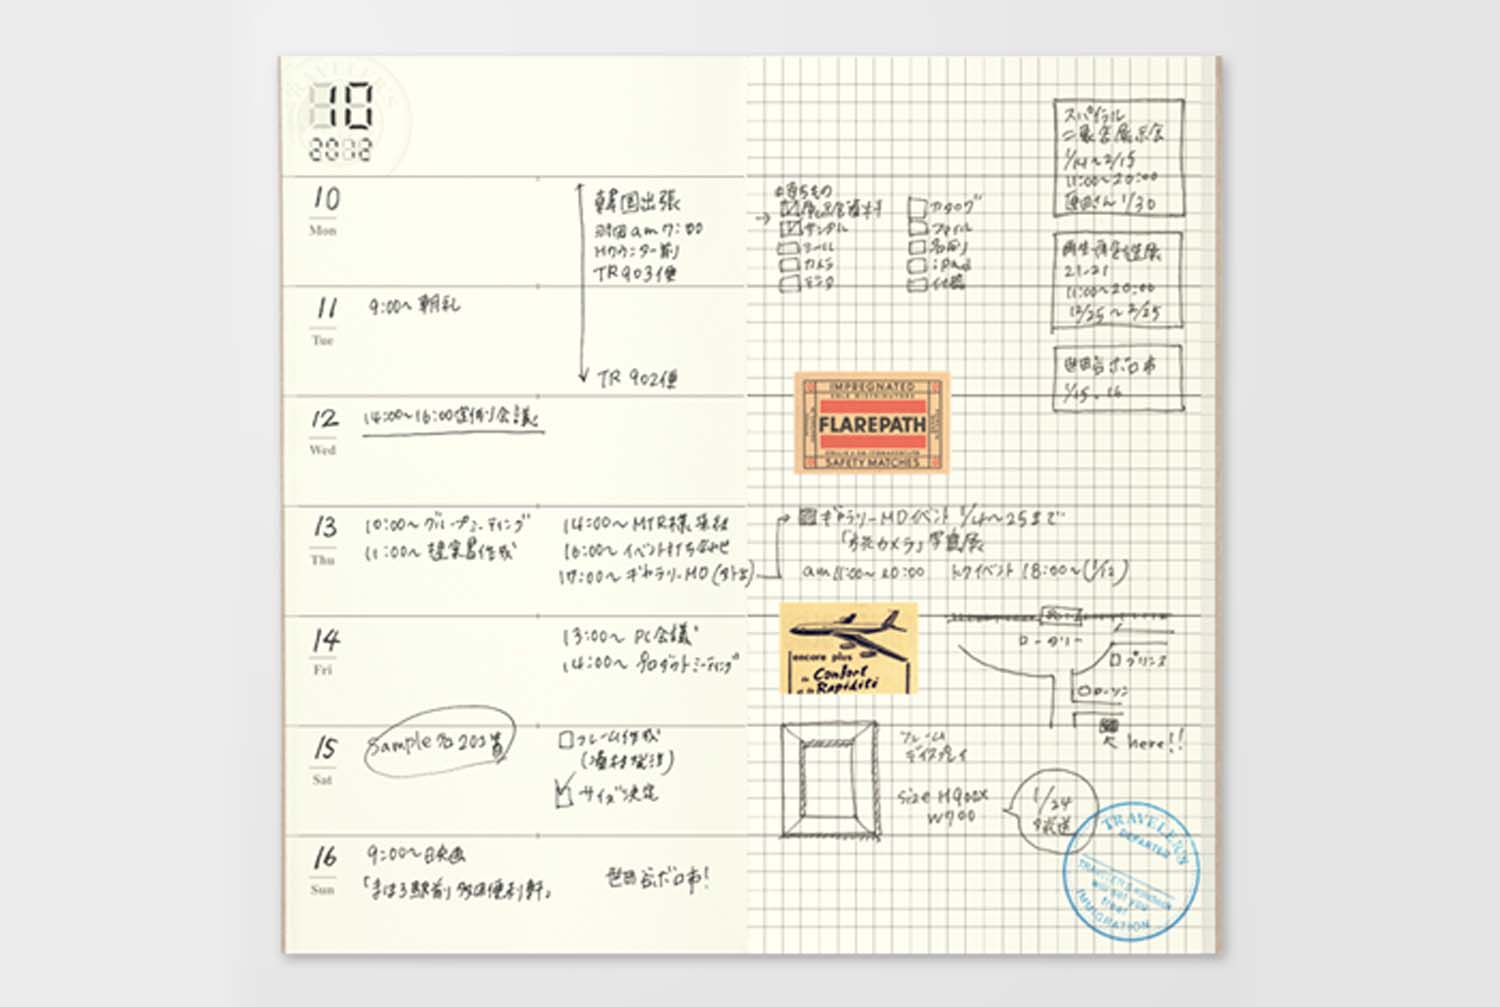 10
2012
10
Mon
韓国出張
羽田am7:00
Hカウンター前
TR903便
11
Tue
9:00〜朝礼
TR 902便
12
Wed
14:00〜16:00定例会議
13
Thu
10:00〜グループミーティング
11:00〜提案書作成
14:00〜MTR様来社
16:00〜イベント打ち合わせ
17:00〜ギャラリーMD
14
Fri
13:00〜PC会議
14:00〜プロダクトミーティング
15
Sat
Sample
フレーム作成
サイズ決定
16
Sun
9:00〜映画
「まほろ駅前多田便利軒」
世田谷ボロ市!
持ちもの
サンプル
ツール
カメラ
カタログ
ファイル
名刺
iPad
スパイラル
展示会
1/14〜2/15
11:00〜20:00
1/30
21-21
11:00〜20:00
12/25〜2/25
世田谷ボロ市
1/15.16
IMPREGNATED
SOLE DISTRIBUTORS
FLAREPATH
SAFETY MATCHES
ギャラリーMDイベント 1/14〜25まで
カメラ」写真展
am11:00〜20:00 トークイベント18:00〜(1/12)
encore plus
de Confort
et de Rapidité
ロータリー
プリンス
ローソン
here!!
フレーム
ディスプレイ
size H900×
W700
1/24
TRAVELER'S
DEPARTED
IMMIGRATION